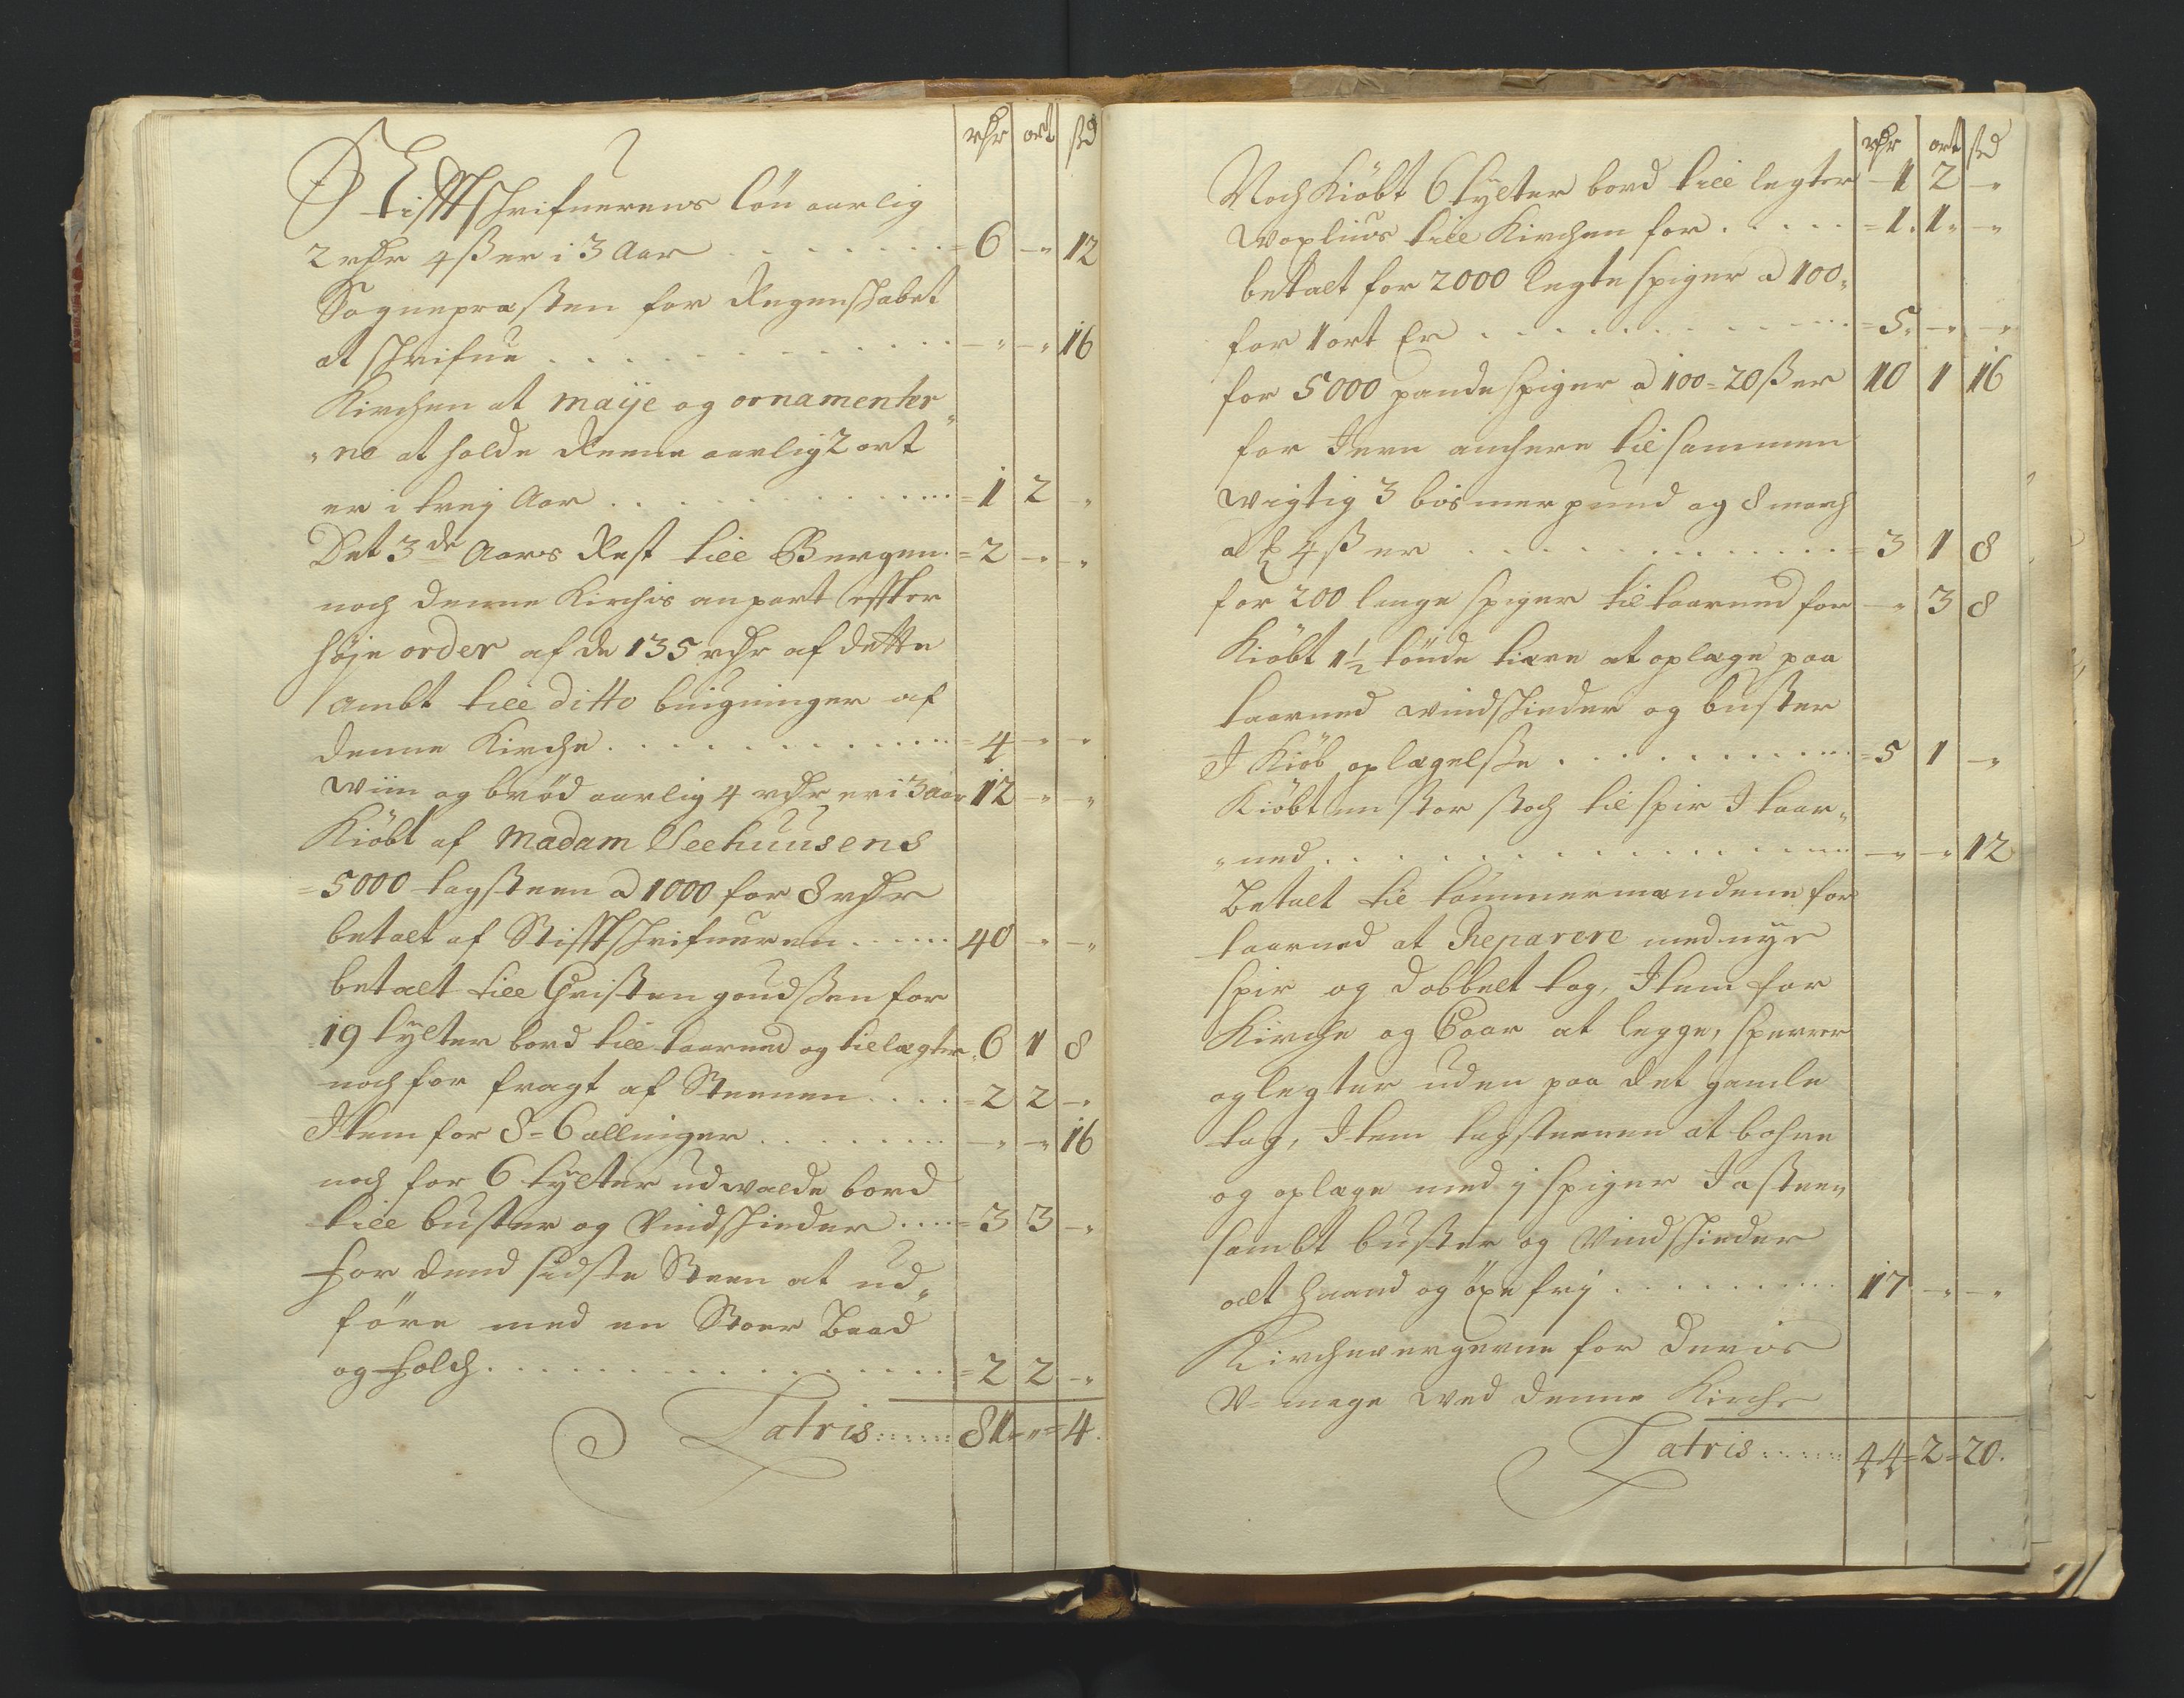 rdr ort sd
Stifftschrifuerens lön aarlig
2 rdr 4 ß er i 3 Aar . . . . . . = 6 - " 12
Sognepræsten for Regenschabet
at schrifue . . . . . . . . . - " - " 16
Kirchen at maije og ornamenter „
„ ne at holde Reene aarlig 2 ort
er i trej Aar . . . . . . . . = 1 2 - "
Det 3de Aars Rest till Bergen . = 2 - " - "
noch denne Kirchis anpart effter
høje order af de 135 rdr af dette
Ambt till ditto biugninger af
denne Kirche . . . . . . . . = 4 - " - "
Wiin og bröd aarlig 4 rdr er i 3 Aar 12 - " - "
Kiöbt af Madam Seehuusens
= 5000 tagsteen a 1000 for 8 rdr
betalt af Stifftschrifueren . . . . 40 - " - "
betalt till Christen goudssen for
19 tylter bord till taarned og til lægter . 6 1 8
noch for fragt af Steenen . . . . = 2 2 - "
Item for 8 = 6 allinger . . . . . . - " - " 16
noch for 6 tylter udwalde bord
till buster og Vindschieder . . . . = 3 3 - "
for dend sidste Steen at ud „
före med en Stoer Baad
og folch . . . . . . . . . . = 2 2 - "
Latris . . . . . . 81 = " = 4 .
rdr ort sd
Noch Kiöbt 6 tylter bord till legter - 1 2 - "
Wopliws till Kirchen for . . . . . = 1 . 1 " - "
betalt for 2000 legtespiger a 100 „
for 1 ort Er . . . . . . . . . = 5 . - " - "
for 5000 pandespiger a 100 = 20 ß er 10 1 16
for Jern anchere til sammen
wigtig 3 bismerpund og 8 march
a ℔ 4 ß er . . . . . . . . . = 3 1 8
for 200 lange spiger til taarned for - " 3 8
Kiöbt 1½ tönde tiære at oplage paa
taarned windschieder og buster
I Kiöb oplagelsse . . . . . . . = 5 1 - "
Kiöbt en stor stoch til spir I taar „
„ ned . . . . . . . . . . . - " - " 12
Betalt til tömmermændene for
taarned at Reparere med nye
spir og dobbelt tag, Item for
Kirche og Coar at legge, sperrer
og legter uden paa det gamle
tag, Item tagsteenen at bohre
og oplage med j spiger I a steen
sambt buster og Vindschieder
alt haand og öxe frij . . . . . . 17 - " - "
Kirchewergerne for deris
V= mage wed denne Kirche
Latris . . . . . . 44 = 2 = 20 .